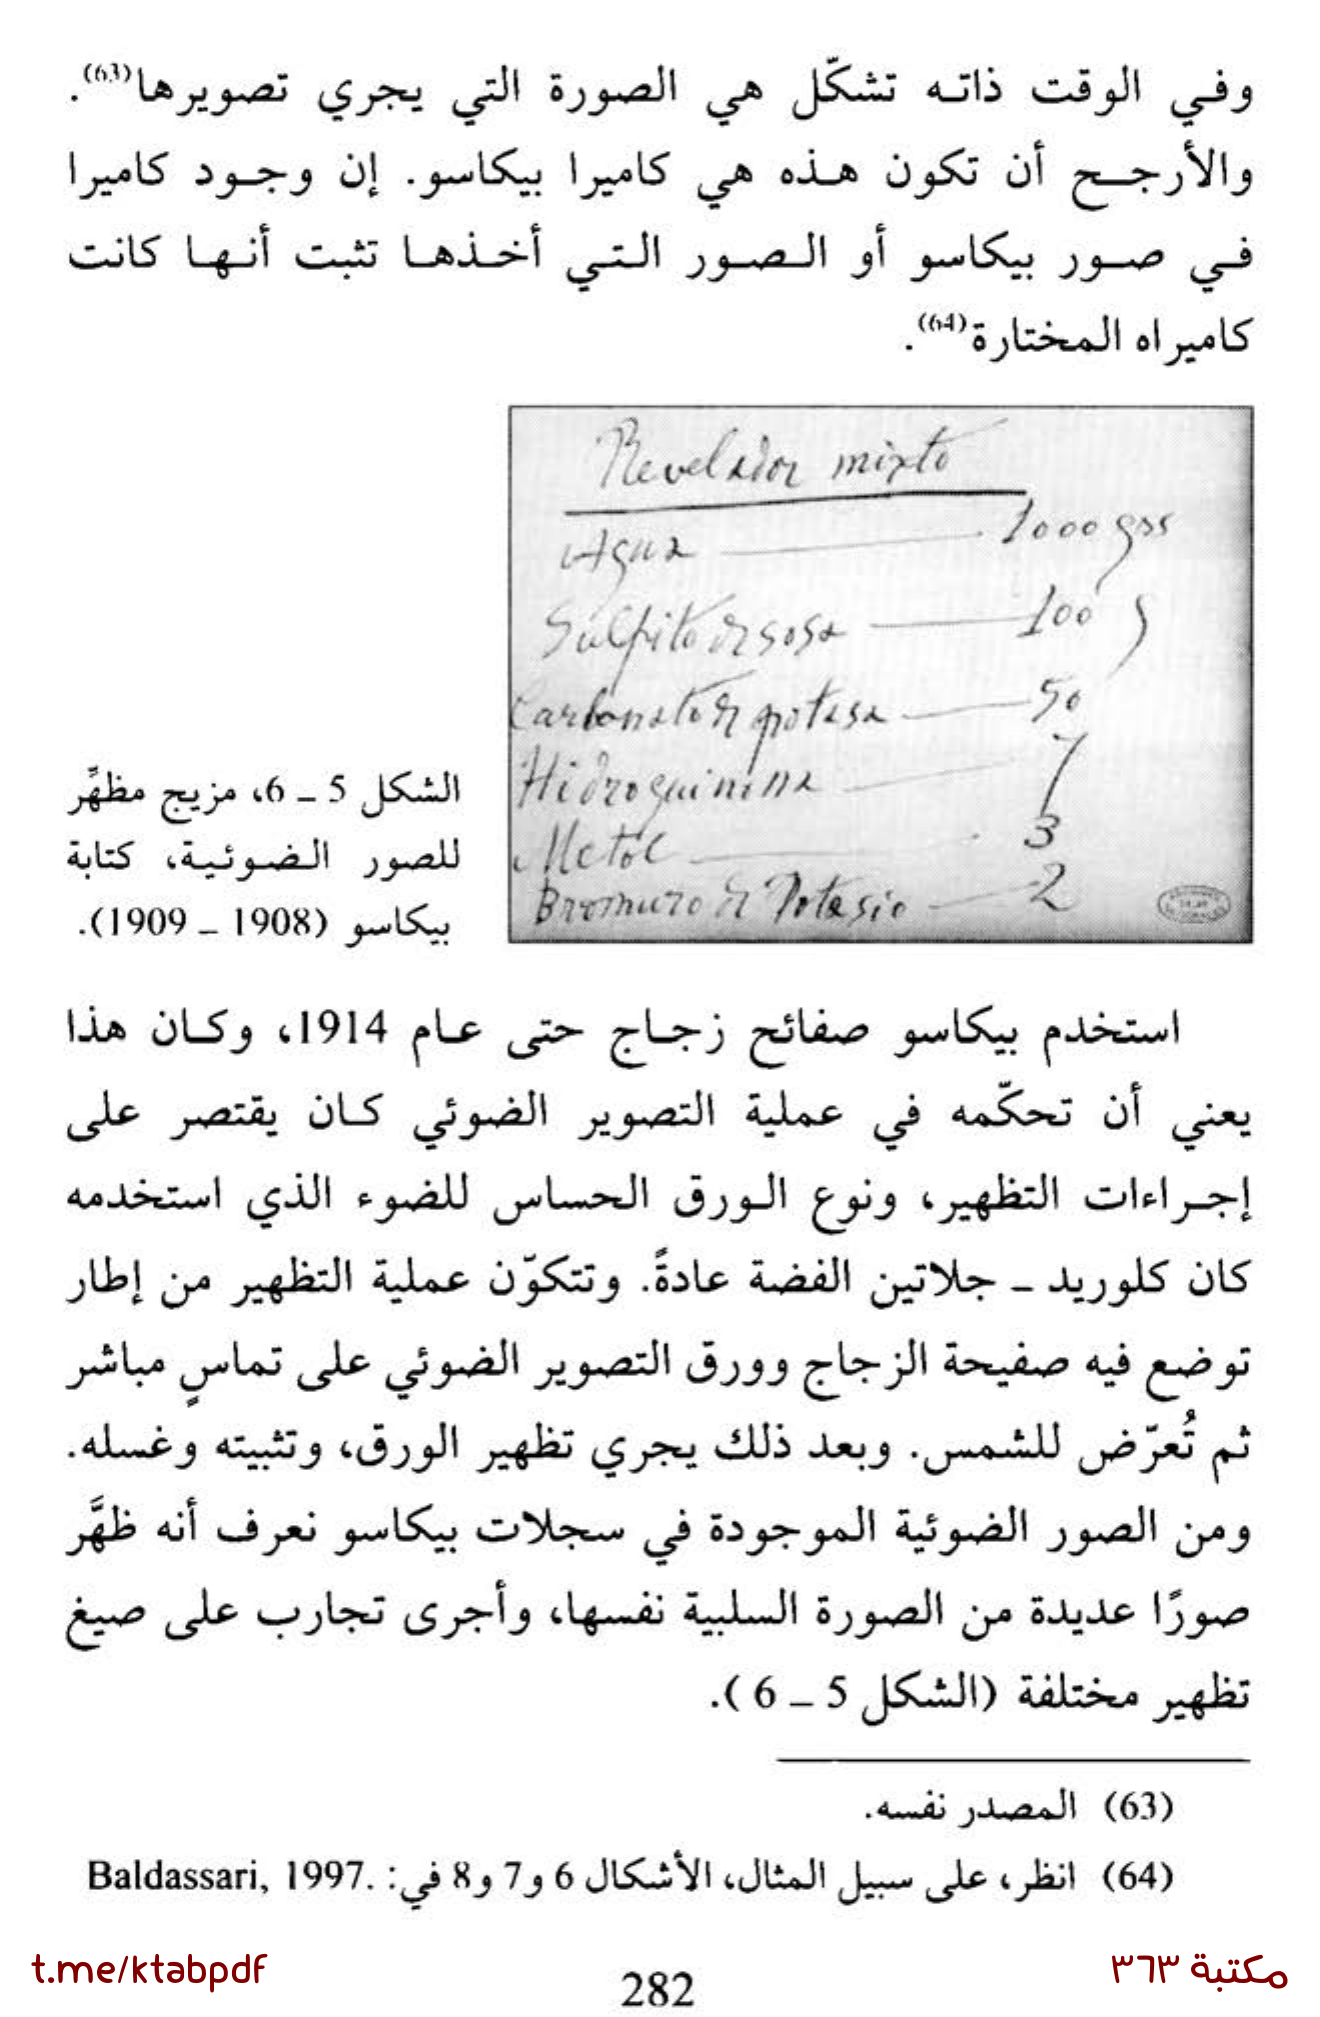 وفي الوقت ذاته تشكّل هي الصورة التي يجري تصويرها(63).
والأرجح أن تكون هذه هي كاميرا بيكاسو. إن وجود كاميرا
في صور بيكاسو أو الصور التي أخذها تثبت أنها كانت
كاميراه المختارة(64).
Revelador mixto
Agua 1000 grs
Sulfito de sosa 100 g
Carbonato de potasa 50
Hidroquinona 7
Metol 3
Bromuro de Potasio 2
الشكل 5 ـ 6، مزيج مظهِّر
للصور الضوئية، كتابة
بيكاسو (1908 ـ 1909).
استخدم بيكاسو صفائح زجاج حتى عام 1914، وكان هذا
يعني أن تحكّمه في عملية التصوير الضوئي كان يقتصر على
إجراءات التظهير، ونوع الورق الحساس للضوء الذي استخدمه
كان كلوريد ـ جلاتين الفضة عادةً. وتتكوّن عملية التظهير من إطار
توضع فيه صفيحة الزجاج وورق التصوير الضوئي على تماسٍ مباشر
ثم تُعرّض للشمس. وبعد ذلك يجري تظهير الورق، وتثبيته وغسله.
ومن الصور الضوئية الموجودة في سجلات بيكاسو نعرف أنه ظهَّر
صورًا عديدة من الصورة السلبية نفسها، وأجرى تجارب على صيغ
تظهير مختلفة (الشكل 5 ـ 6).
(63) المصدر نفسه.
(64) انظر، على سبيل المثال، الأشكال 6 و7 و8 في: Baldassari, 1997.
t.me/ktabpdf
282
مكتبة ٣٦٣